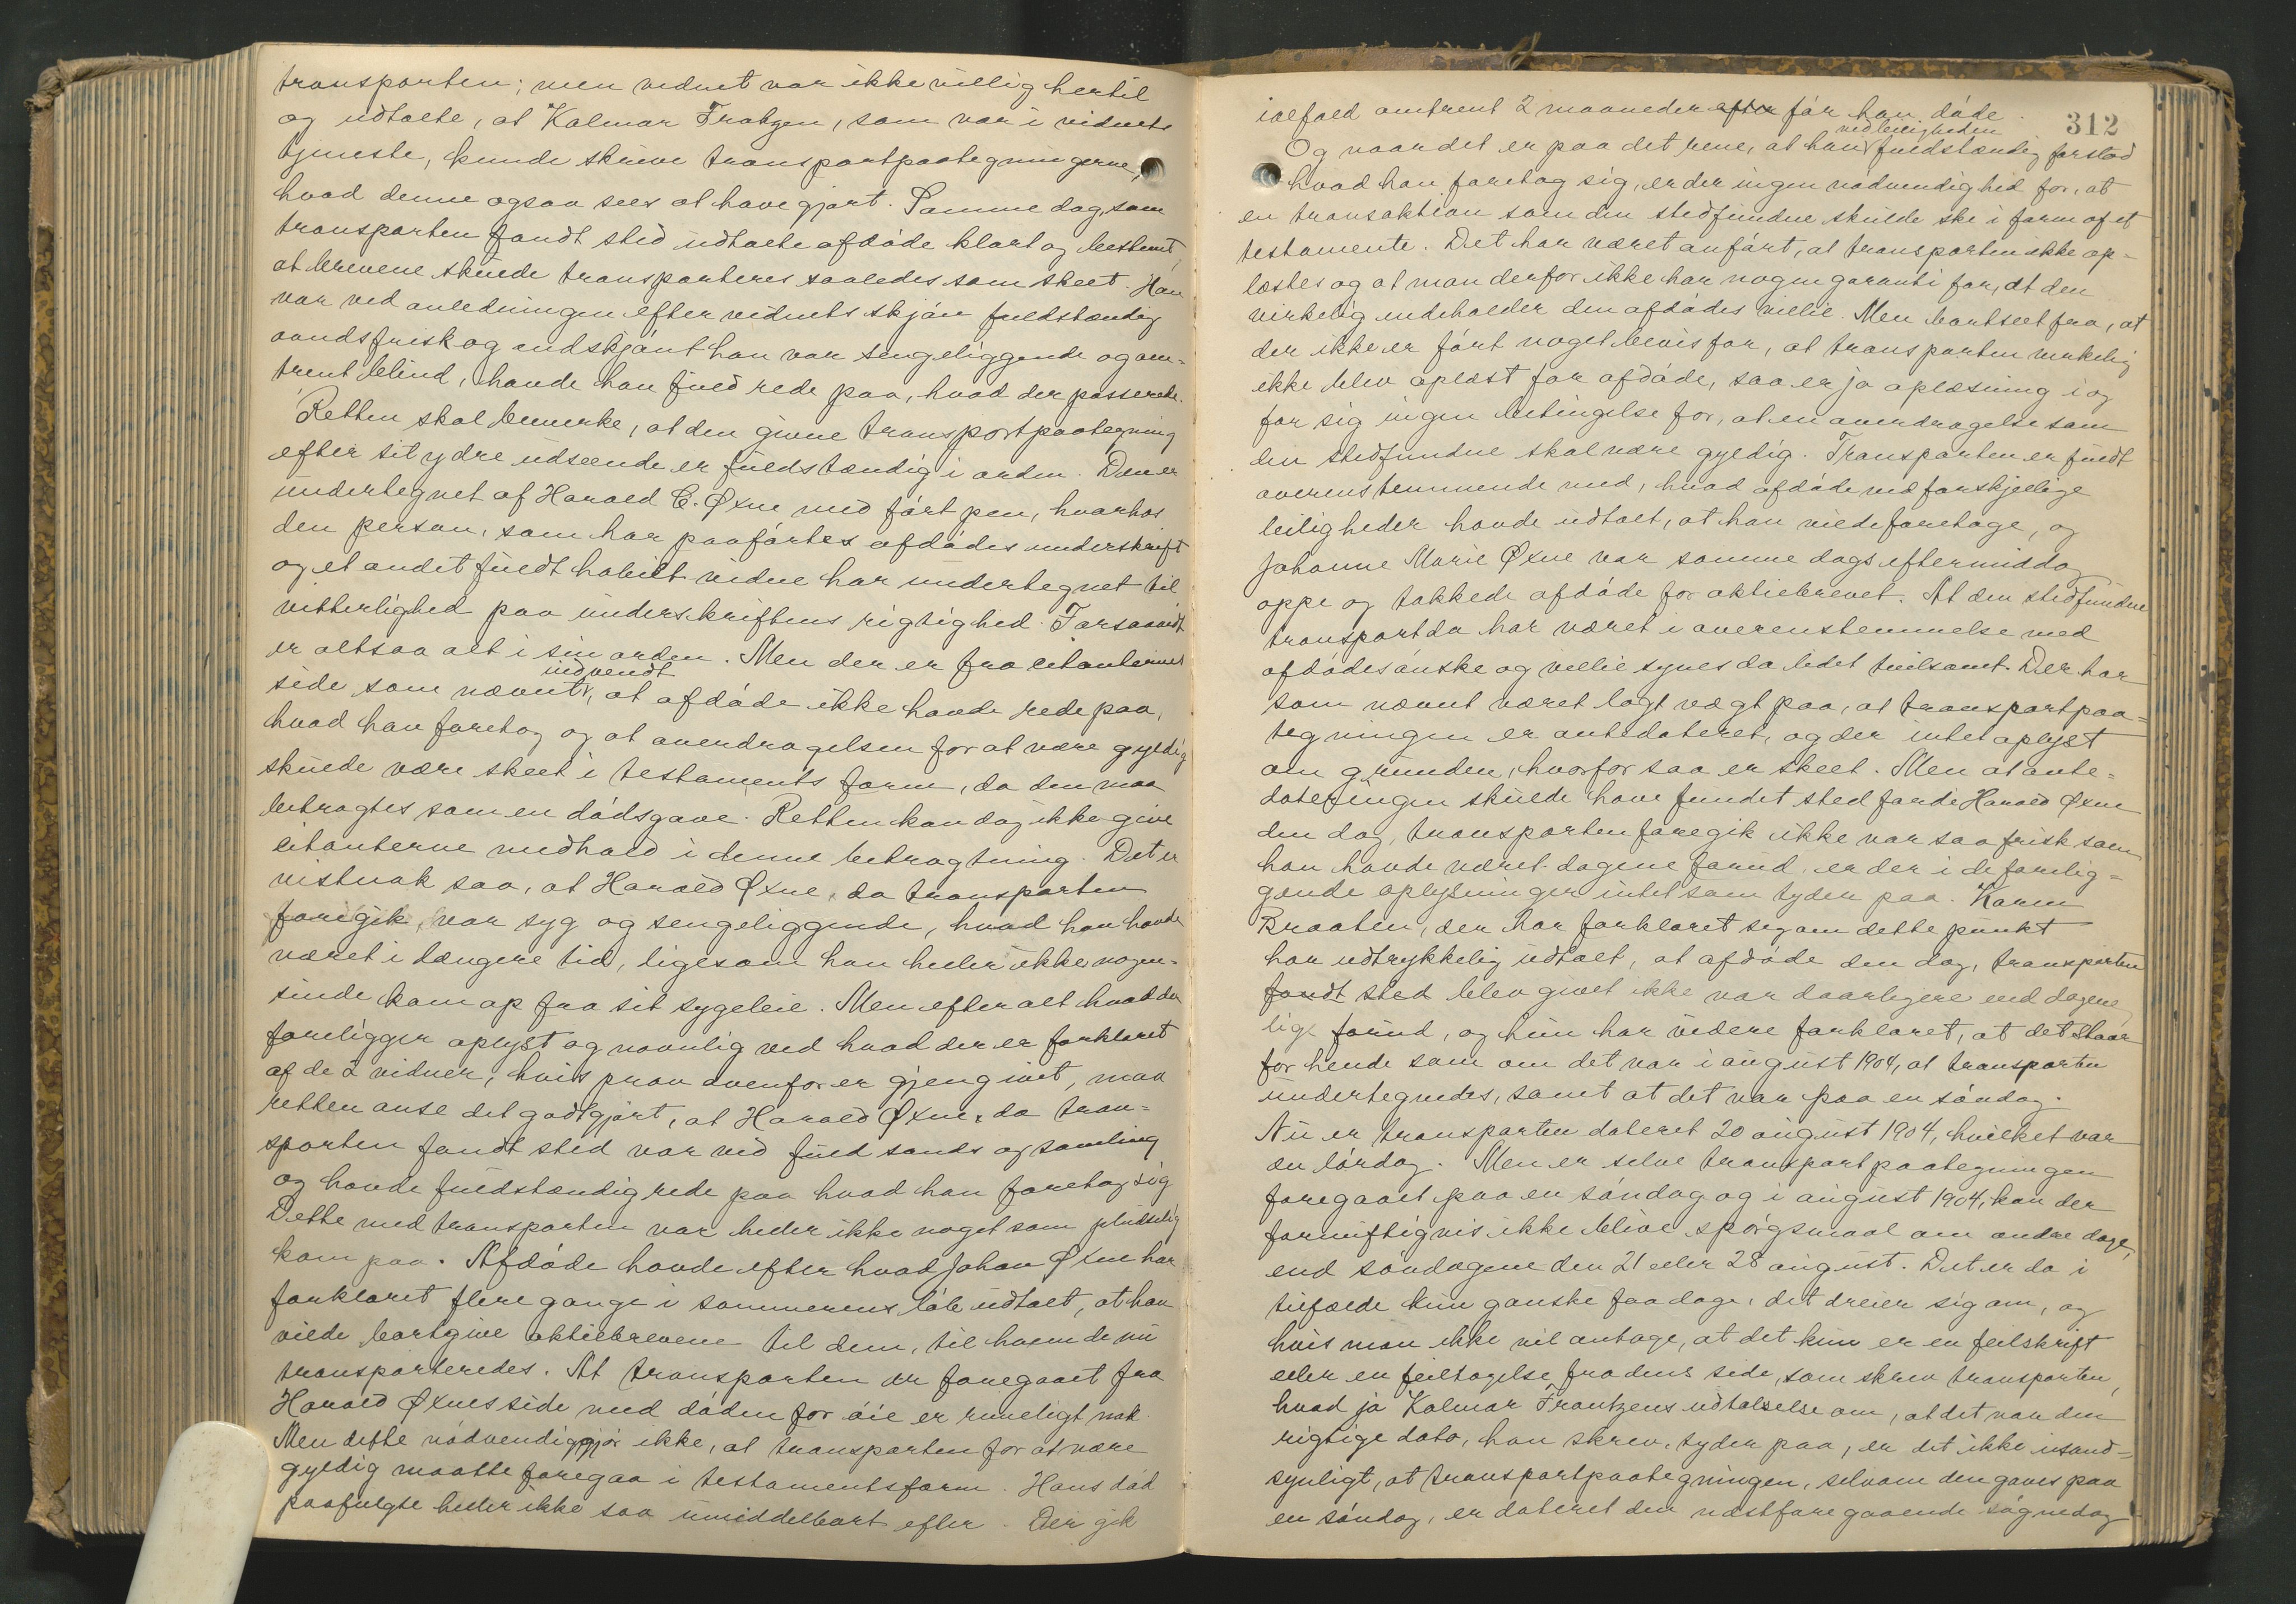 transporten; men vidnet var ikke villig hertil
og udtalte, at Kalmar Frantzen, som var i vidnets
tjeneste, kunde skrive transportpaategningerne,
hvad denne ogsaa sees at have gjort. Samme dag, som
transporten fandt sted udtalte afdøde klart og bestemt,
at brevene skulde transporteres saaledes som skeet. Han
var ved anledningen efter vidnets skjøn fuldstændig
aandsfrisk og endskjønt han var sengeliggende og om-
trent blind, havde han fuld rede paa, hvad der passerede.
Retten skal bemerke, at den givne transportpaategning
efter sit ydre udseende er fuldstændig i orden. Den er
undertegnet af Harald C. Øxne med ført pen, hvorhos
den person, som har paaført afdødes underskrift
og et andet fuldt habilt vidne har undertegnet til
vitterlighed paa underskriftens rigtighed. Forsaavidt
er altsaa alt i sin orden. Men der er fra citanternes
indvendt
side som nævnt, at afdøde ikke havde rede paa,
hvad han foretog og at overdragelsen for at være gyldig
skulde være skeet i testaments form, da den maa
betragtes som en dødsgave. Retten kan dog ikke give
citanterne medhold i denne betragtning. Det er
vistnok saa, at Harald Øxne, da transporten
foregik, var syg og sengeliggende, hvad han havde
været i længere tid, ligesom han heller ikke nogen-
sinde kom op fra sit sygeleie. Men efter alt hvad der
foreligger oplyst og navnlig ved hvad der er forklaret
af de 2 vidner, hvis prov ovenfor er gjengivet, maa
retten anse det godtgjort, at Harald Øxne, da tran-
sporten fandt sted var ved fuld sands og samling
og havde fuldstændig rede paa hvad han foretog sig
Dette med transporten var heller ikke noget som pludselig
kom paa. Afdøde havde efter hvad Johan Øxne har
forklaret flere gange i sommerens løb udtalt, at han
vilde bortgive aktiebrevene til dem, til hvem de nu
transporteredes. At transporten er foregaaet fra
Harald Øxnes side med døden for øie er rimeligt nok.
Men dette nødvendiggjør ikke, at transporten for at være
gyldig maatte foregaa i testamentsform. Hans død
paafulgte heller ikke saa umiddelbart efter. Der gik
312
ialfald omtrent 2 maaneder efter før han døde.
ved leiligheden
Og naar det er paa det rene, at han fuldstændig forstod
hvad han foretog sig, er der ingen nødvendighed for, at
en transaktion som den stedfundne skulde ske i form af et
testamente. Det har været anført, at transporten ikke op-
læstes og at man derfor ikke har nogen garanti for, at den
virkelig indeholder den afdødes villie. Men bortseet fra, at
der ikke er ført noget bevis for, at transporten virkelig
ikke blev oplæst for afdøde, saa er jo oplæsning i og
for sig ingen betingelse for, at en overdragelse som
den stedfundne skal være gyldig. Transporten er fuldt
overenstemmende med, hvad afdøde ved forskjellige
leiligheder havde udtalt, at han vilde foretage, og
Johanne Marie Øxne var samme dags eftermiddag
oppe og takkede afdøde for aktiebrevet. At den stedfundne
transport da har været i overenstemmelse med
afdødes ønske og villie synes da lidet tvilsomt. Der har
som nævnt været lagt vægt paa, at transportpaa-
tegningen er antedateret, og der intet oplyst
om grunden, hvorfor saa er skeet. Men at ante-
dateringen skulde have fundet sted fordi Harald Øxne
den dag, transporten foregik ikke var saa frisk som
han havde været dagene forud, er der i de forelig-
gende oplysninger intet som tyder paa. Karen
Braaten, der har forklaret sig om dette punkt
har udtrykkelig udtalt, at afdøde den dag, transporten
fandt sted blev givet ikke var daarligere end dagene
lige forud, og hun har videre forklaret, at det staar
for hende som om det var i august 1904, at transporten
undertegnedes, samt at det var paa en søndag.
Nu er transporten dateret 20 august 1904, hvilket var
en lørdag. Men er selve transportpaategningen
foregaaet paa en søndag og i august 1904, kan der
fornuftigvis ikke blive spørgsmaal om andre dage,
end søndagene den 21 eller 28 august. Det er da i
tilfælde kun ganske faa dage, det dreier sig om, og
hvis man ikke vil antage, at det kun er en feilskrift
eller en feiltagelse fra dens side, som skrev transporten,
hvad jo Kalmar Frantzens udtalelse om, at det var den
rigtige dato, han skrev, tyder paa, er det ikke usand-
synligt, at transportpaategningen, selvom den gaves paa
en søndag, er dateret den næstforegaaende søgnedag